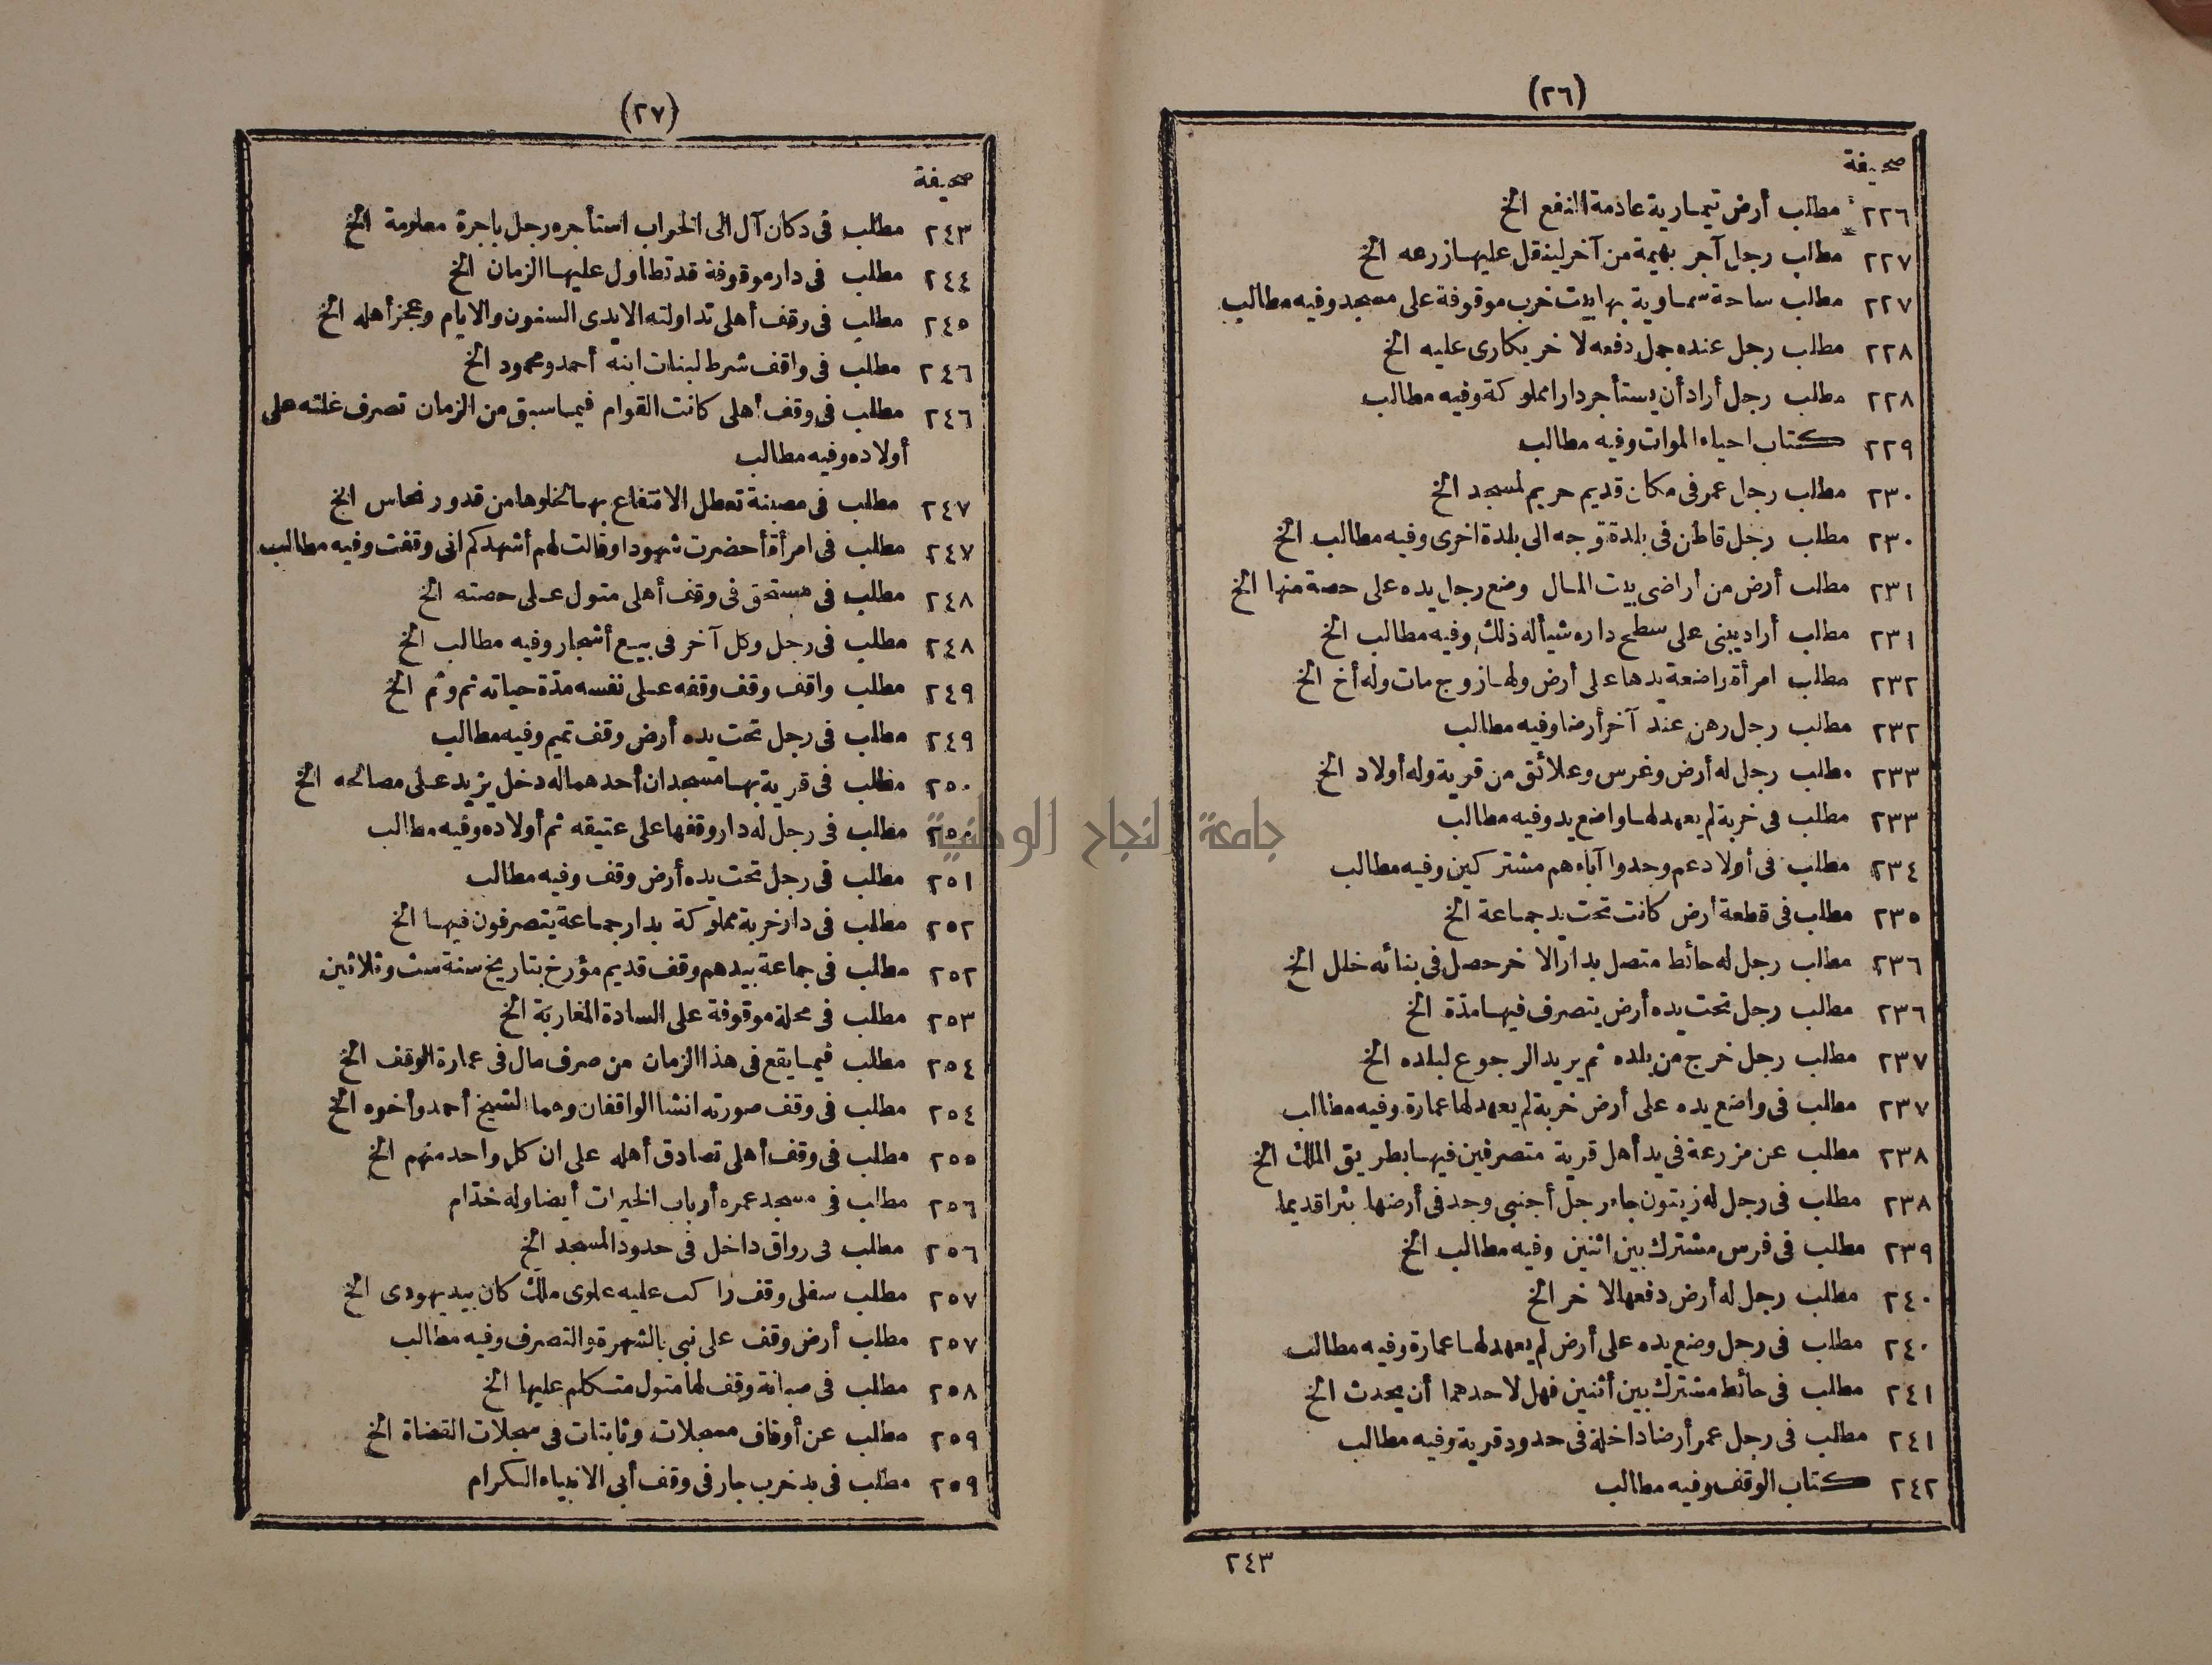 (٢٦)
صحيفة
٢٢٦ مطلب أرض تيمارية عادمة النفع الخ
٢٢٧ مطلب رجل آجر بهيمة من آخر لينقل عليها زرعه الخ
٢٢٧ مطلب ساحة سماوية بها بيت خرب موقوفة على مسجد وفيه مطالب
٢٢٨ مطلب رجل عنده جمل دفعه لآخر يكارى عليه الخ
٢٢٨ مطلب رجل أراد أن يستأجر دارا مملوكة وفيه مطالب
٢٢٩ كتاب احياء الموات وفيه مطالب
٢٣٠ مطلب رجل عمر فى مكان قديم حريم لمسجد الخ
٢٣٠ مطلب رجل قاطن فى بلدة توجه الى بلدة اخرى وفيه مطالب الخ
٢٣١ مطلب أرض من أراضى بيت المال وضع رجل يده على حصة منها الخ
٢٣١ مطلب أراد يبنى على سطح داره شيأ له ذلك وفيه مطالب الخ
٢٣٢ مطلب امرأة راضعة يدها على أرض ولها زوج مات وله أخ الخ
٢٣٢ مطلب رجل رهن عند آخر أرضا وفيه مطالب
٢٣٣ مطلب رجل له أرض وغرس وعلائق من قرية وله أولاد الخ
٢٣٣ مطلب فى خربة لم يعهد لها واضع يد وفيه مطالب
٢٣٤ مطلب فى أولاد عم وجدوا آباءهم مشتركين وفيه مطالب
٢٣٥ مطلب فى قطعة أرض كانت تحت يد جماعة الخ
٢٣٦ مطلب رجل له حائط متصل بدار الآخر حصل فى بنائه خلل الخ
٢٣٦ مطلب رجل تحت يده أرض يتصرف فيها مدة الخ
٢٣٧ مطلب رجل خرج من بلده ثم يريد الرجوع لبلده الخ
٢٣٧ مطلب فى واضع يده على أرض خربة لم يعهد لها عمارة وفيه مطالب
٢٣٨ مطلب عن مزرعة فى يد أهل قرية متصرفين فيها بطريق الملك الخ
٢٣٨ مطلب فى رجل له زيتون جاء رجل أجنبى وجد فى أرضها بئرا قديما
٢٣٩ مطلب فى فرس مشترك بين اثنين وفيه مطالب الخ
٢٤٠ مطلب رجل له أرض دفعها لآخر الخ
٢٤٠ مطلب فى رجل وضع يده على أرض لم يعهد لها عمارة وفيه مطالب
٢٤١ مطلب فى حائط مشترك بين أثنين فهل لاحدهما أن يحدث الخ
٢٤١ مطلب فى رجل عمر أرضا داخلة فى حدود قرية وفيه مطالب
٢٤٢ كتاب الوقف وفيه مطالب
٢٤٣
(٢٧)
صحيفة
٢٤٣ مطلب فى دكان آل الى الخراب استأجره رجل باجرة معلومة الخ
٢٤٤ مطلب فى دار موقوفة قد تطاول عليها الزمان الخ
٢٤٥ مطلب فى وقف أهلى تداولته الايدى السنون والايام وعجز أهله الخ
٢٤٦ مطلب فى واقف شرط لبنات ابنه أحمد ومحمود الخ
٢٤٦ مطلب فى وقف أهلى كانت القوام فيما سبق من الزمان تصرف غلته على
أولاده وفيه مطالب
٢٤٧ مطلب فى مصبنة تعطل الانتفاع بها لخلوها من قدور نحاس الخ
٢٤٧ مطلب فى امرأة أحضرت شهودا وقالت لهم أشهدكم انى وقفت وفيه مطالب
٢٤٨ مطلب فى مستحق فى وقف أهلى متول على حصته الخ
٢٤٨ مطلب فى رجل وكل آخر فى بيع أشجار وفيه مطالب الخ
٢٤٩ مطلب واقف وقف وقفه على نفسه مدة حياته ثم وثم الخ
٢٤٩ مطلب فى رجل تحت يده أرض وقف تميم وفيه مطالب
٢٥٠ مطلب فى قرية بها مسجدان أحدهما له دخل يزيد على مصالحه الخ
مطلب فى رجل له دار وقفها على عتيقه ثم أولاده وفيه مطالب
٢٥١ مطلب فى رجل تحت يده أرض وقف وفيه مطالب
٢٥٢ مطلب فى دار خربة مملوكة بدار جماعة يتصرفون فيها الخ
٢٥٢ مطلب فى جماعة بيدهم وقف قديم مؤرخ بتاريخ سنة ست وثلاثين
٢٥٣ مطلب فى محلة موقوفة على السادة المغاربة الخ
٢٥٤ مطلب فيما يقع فى هذا الزمان من صرف مال فى عمارة الوقف الخ
٢٥٤ مطلب فى وقف صورته انشا الواقفان وهما الشيخ أحمد وأخوه الخ
٢٥٥ مطلب فى وقف أهلى تصادق أهله على ان كل واحد منهم الخ
٢٥٦ مطلب فى مسجد عمره أرباب الخيرات أيضا وله خدّام
٢٥٦ مطلب فى رواق داخل فى حدود المسجد الخ
٢٥٧ مطلب سفلى وقف راكب عليه علوى ملك كان بيد يهودى الخ
٢٥٧ مطلب أرض وقف على نبى بالشهرة والتصرف وفيه مطالب
٢٥٨ مطلب فى صبانة وقف لها متول متكلم عليها الخ
٢٥٩ مطلب عن أوقاف مسجلات وثابتات فى سجلات القضاة الخ
٢٥٩ مطلب فى بد خرب جار فى وقف أبى الانبياء الكرام
جامعة النجاح الوطنية